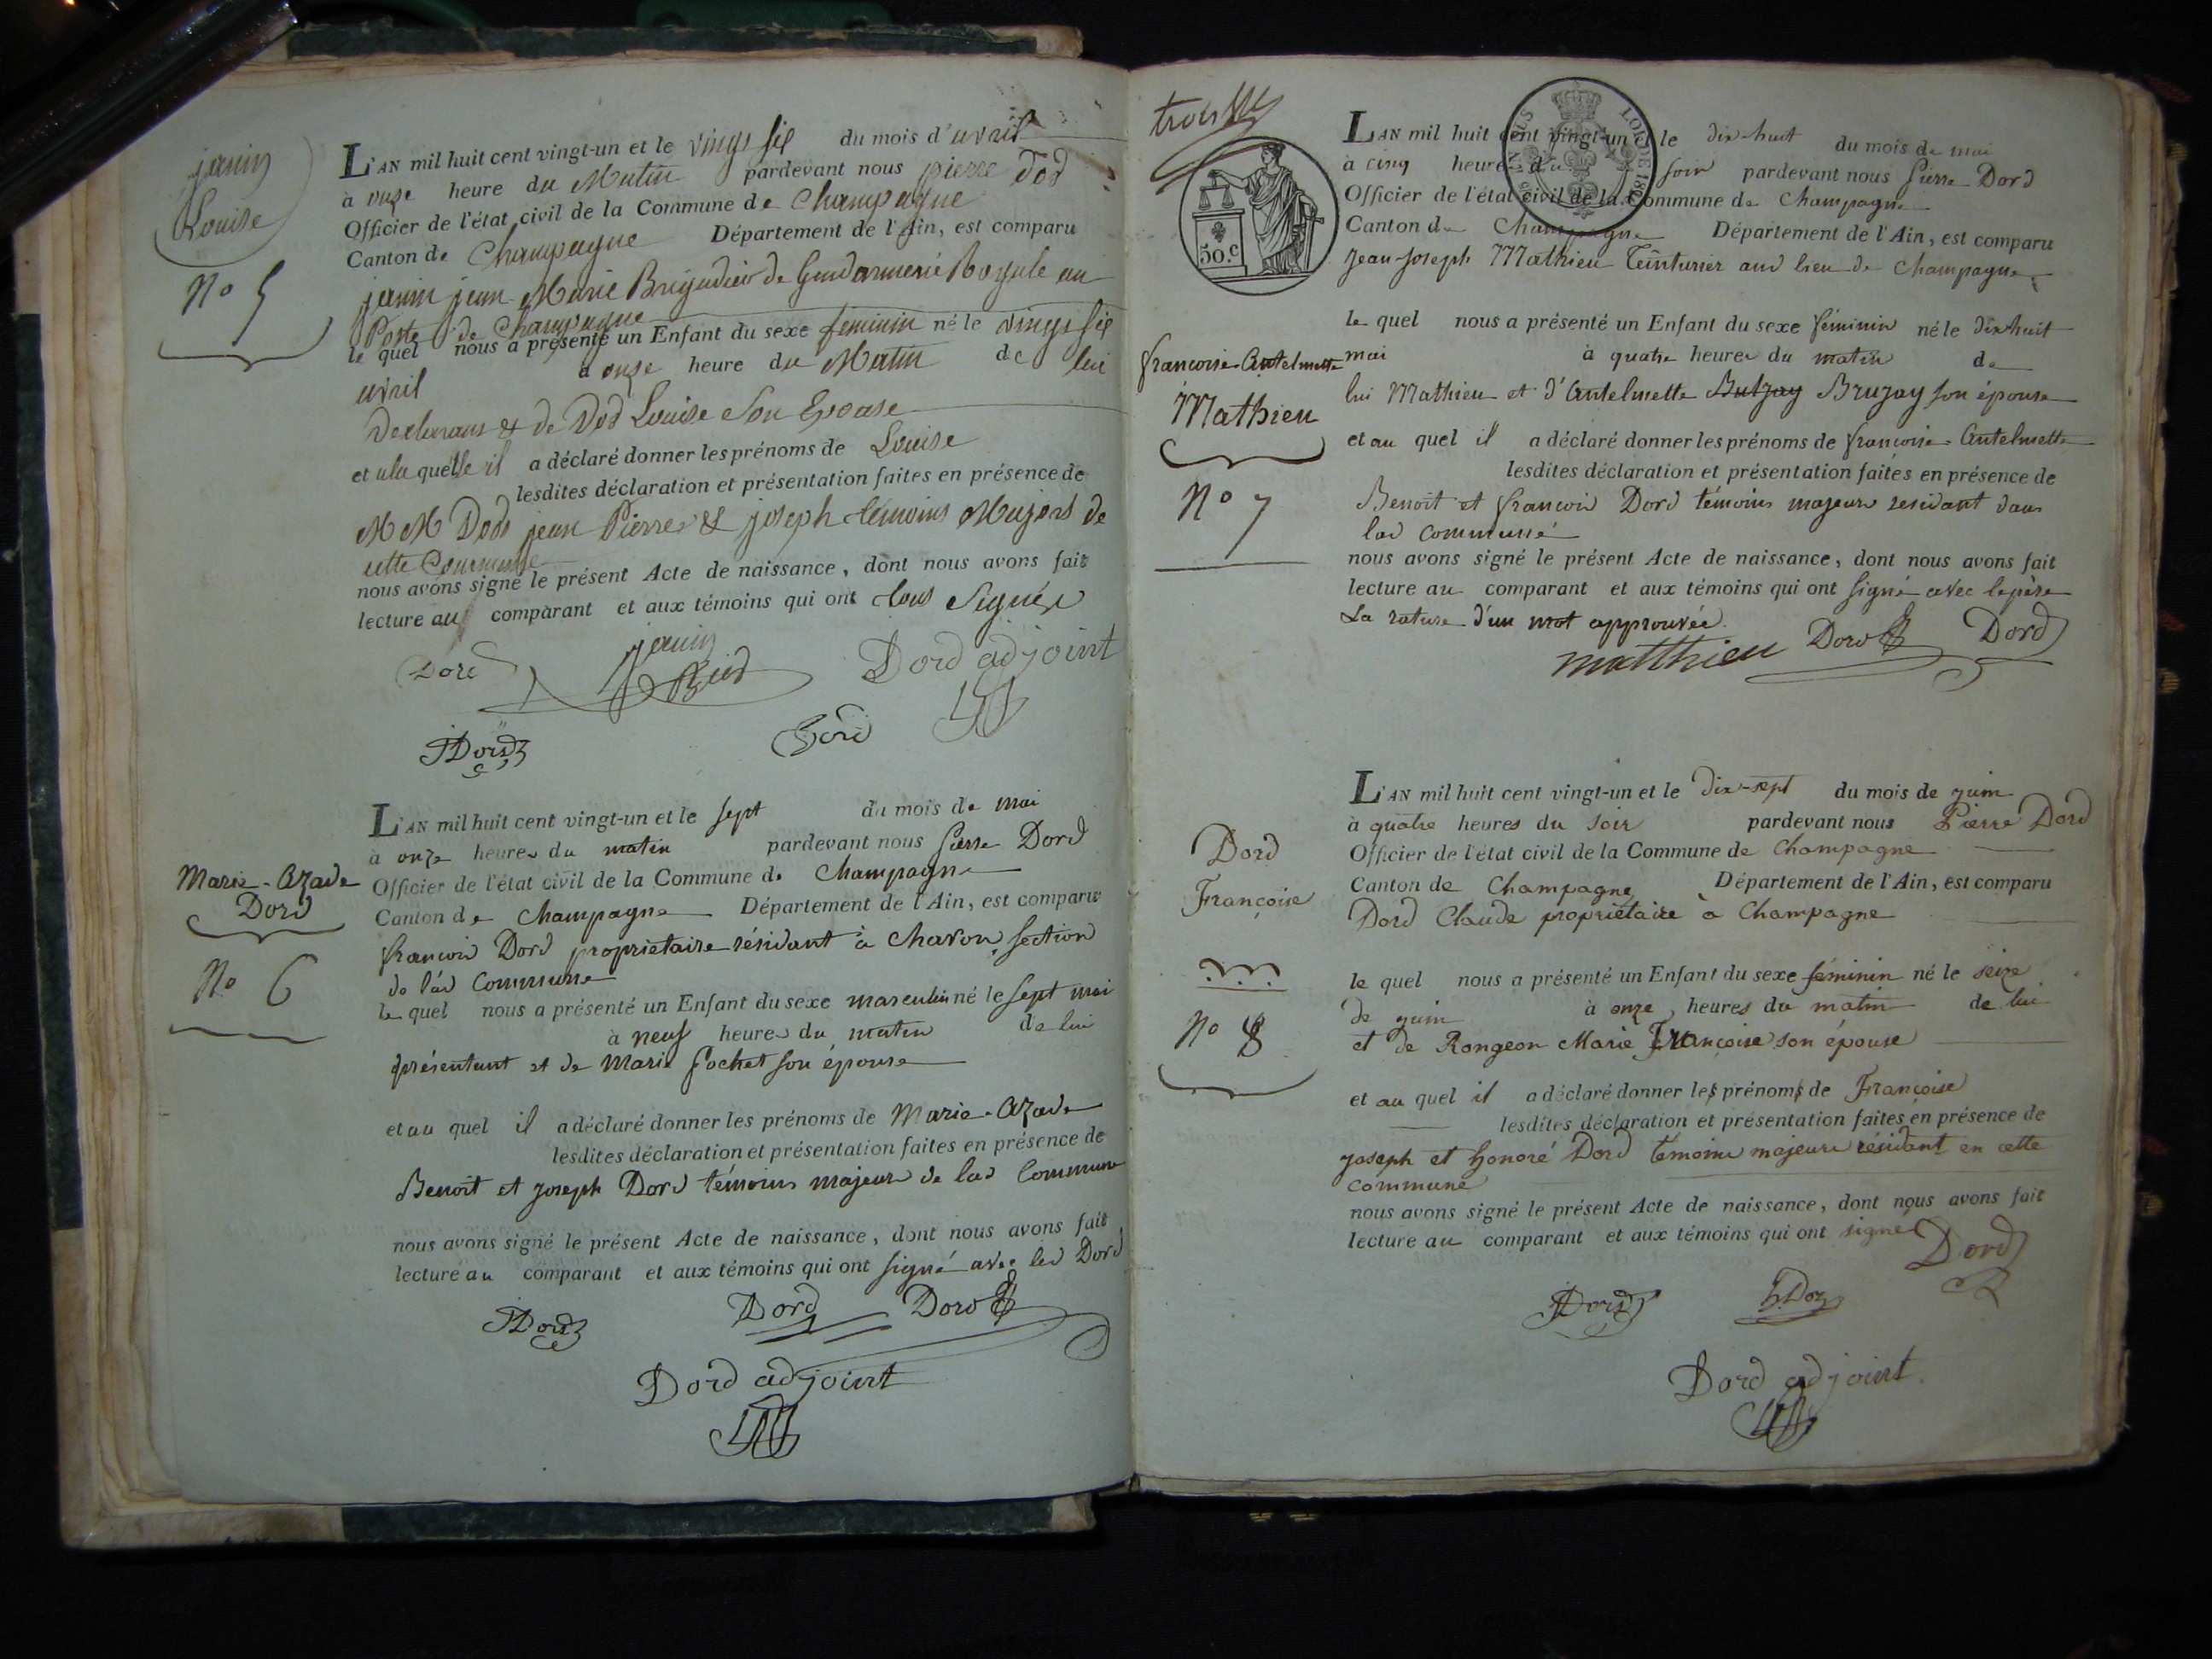 janin
Louise
No 5
L'AN mil huit cent vingt-un et le vingt six du mois d'avril
à onze heure du Matin pardevant nous pierre Dod
Officier de l'état civil de la Commune de Champagne
Canton de Champagne Département de l'Ain, est comparu
janin jean Marie Brigadier de Gendarmerie Royale au
Poste de Champagne
le quel nous a présenté un Enfant du sexe feminin né le vingt six
avril à onze heure du Matin de lui
Declarant & de Dod Louise Son Epouse
et a la quelle il a déclaré donner les prénoms de Louise
lesdites déclaration et présentation faites en présence de
M M Dods jean Pierre & joseph témoins Majors de
cette Commune
nous avons signé le présent Acte de naissance, dont nous avons fait
lecture au comparant et aux témoins qui ont tous Signés
Dord janin Dord adjoint
JDord Dord
Marie-Azade
Dord
No 6
L'AN mil huit cent vingt-un et le sept du mois de mai
à onze heures du matin pardevant nous Pierre Dord
Officier de l'état civil de la Commune de Champagne
Canton de Champagne Département de l'Ain, est comparu
françois Dord propriétaire résidant à Charon, section
de lad Commune
le quel nous a présenté un Enfant du sexe masculin né le sept mai
à neuf heures du matin de lui
présentant et de Marie Pochet son épouse
et au quel il a déclaré donner les prénoms de Marie-Azade
lesdites déclaration et présentation faites en présence de
Benoit et joseph Dord témoins majeurs de lad Commune
nous avons signé le présent Acte de naissance, dont nous avons fait
lecture au comparant et aux témoins qui ont signé avec led Dord
JDord Dord Dord
Dord adjoint
trois
50.C
françoise-Antelmette
Mathieu
No 7
L'AN mil huit cent vingt-un et le dix-huit du mois de mai
à cinq heures du soir pardevant nous Pierre Dord
Officier de l'état civil de la Commune de Champagne
Canton de Champagne Département de l'Ain, est comparu
Jean-Joseph Mathieu Teinturier aud lieu de Champagne
le quel nous a présenté un Enfant du sexe féminin né le dix huit
mai à quatre heures du matin de
lui Mathieu et d'Antelmette Butzay Bruzay son épouse
et au quel il a déclaré donner les prénoms de françoise-Antelmette
lesdites déclaration et présentation faites en présence de
Benoit et françois Dord témoins majeurs residant dans
lad commune
nous avons signé le présent Acte de naissance, dont nous avons fait
lecture au comparant et aux témoins qui ont signé avec le père
La rature d'un mot approuvée.
matthieu Dord Dord
Dord
Françoise
No 8
L'AN mil huit cent vingt-un et le dix-sept du mois de juin
à quatre heures du soir pardevant nous Pierre Dord
Officier de l'état civil de la Commune de Champagne
Canton de Champagne Département de l'Ain, est comparu
Dord Claude propriétaire à Champagne
le quel nous a présenté un Enfant du sexe féminin né le seize
de juin à onze heures du matin de lui
et de Rongeon Marie Françoise son épouse
et au quel il a déclaré donner les prénoms de Françoise
lesdites déclaration et présentation faites en présence de
joseph et honoré Dord témoins majeurs résidant en cette
commune
nous avons signé le présent Acte de naissance, dont nous avons fait
lecture au comparant et aux témoins qui ont signé
Dord
JDord h.Dor
Dord adjoint